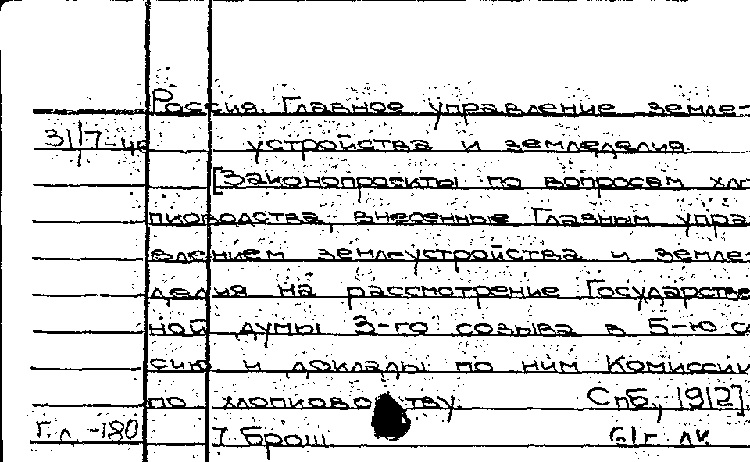 Россия. Главное управление земле-
31/7-46 устройства и земледелия.
[Законопроекты по вопросам хло
пководства, внесенные Главным упра
влением землеустройства и земле-
делия на рассмотрение Государстве
ной думы 3-го созыва в 5-ю с
сию и доклады по ним Комиссии
по хлопководству. Спб., 1912]
Г.л. -180 1 брош.